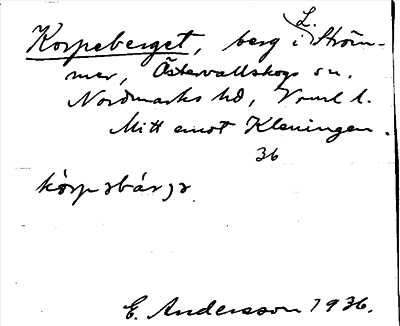 Korpeberget, berg i L. Ström-
mer, Östervallskogs sn.
Nordmarks hd, Vrml l.
Mitt emot Kleningen.
36
kòrpəbárjə
E. Andersson 1936.